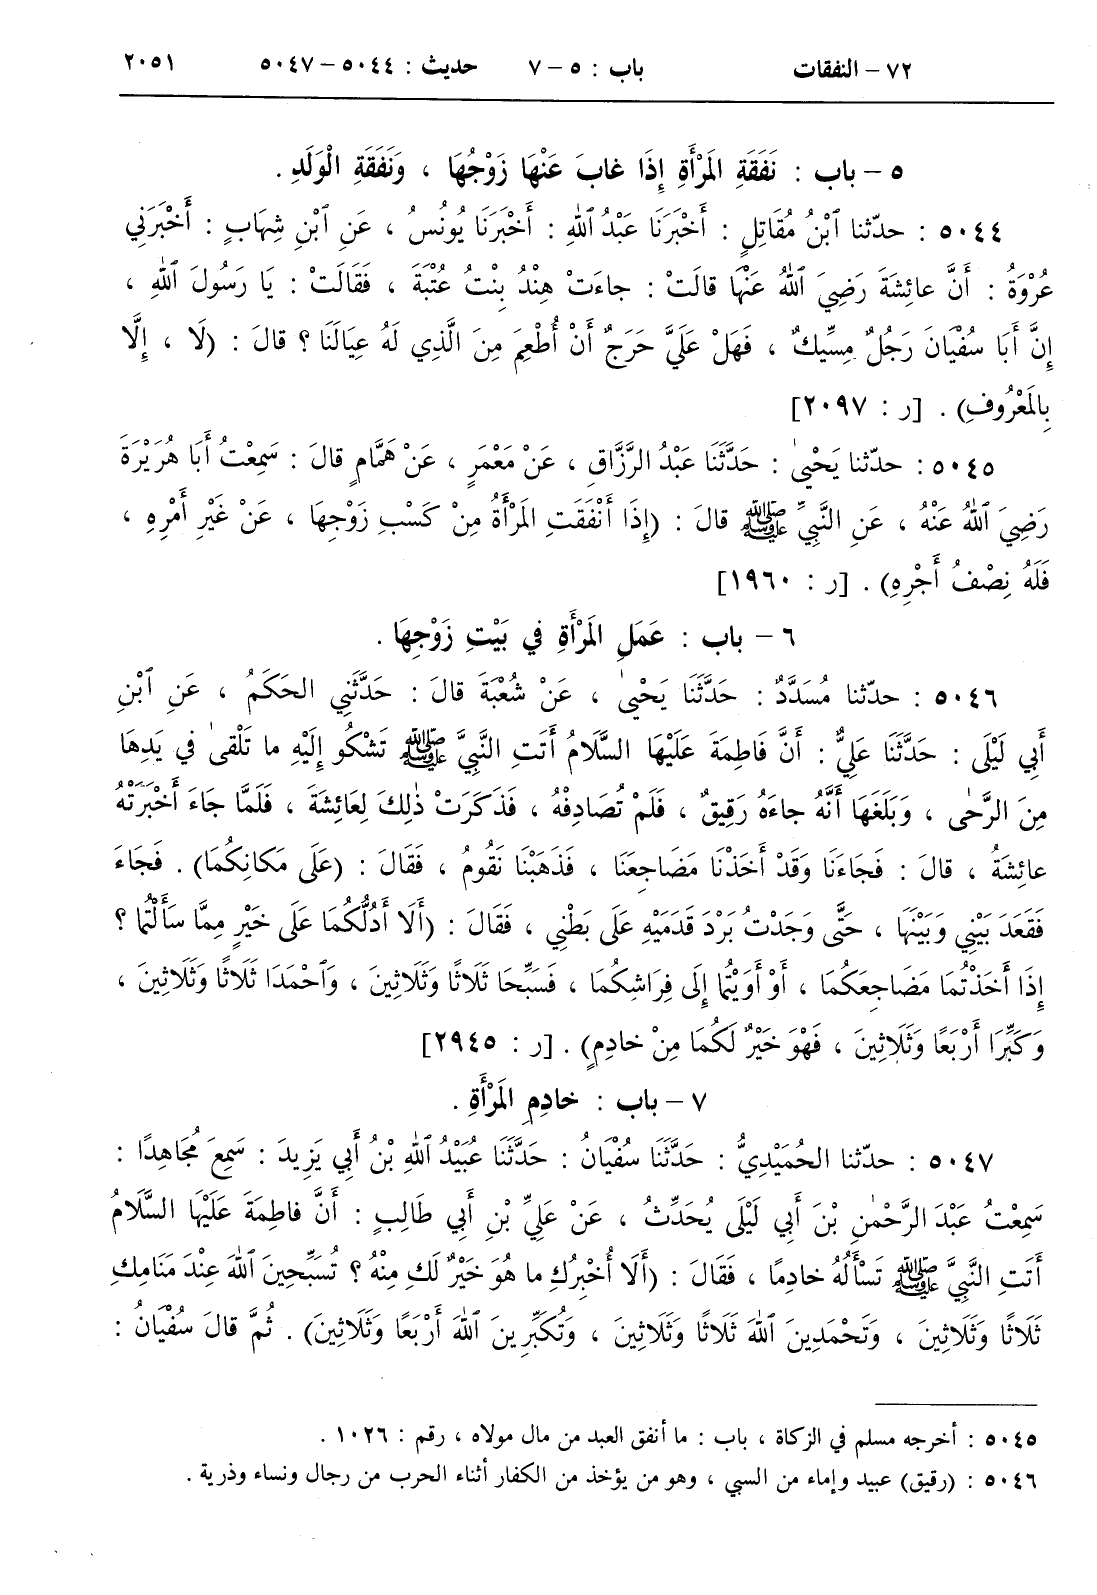 ٧٢ – النفقات باب : ٥ – ٧ حديث : ٥٠٤٤ – ٥٠٤٧ ٢٠٥١
٥ – باب : نَفَقَةِ المَرْأَةِ إِذَا غابَ عَنْهَا زَوْجُهَا ، وَنَفَقَةِ الْوَلَدِ .
٥٠٤٤ : حدّثنا ٱبْنُ مُقَاتِلٍ : أَخْبَرَنَا عَبْدُ ٱللهِ : أَخْبَرَنَا يُونُسُ ، عَنِ ٱبْنِ شِهَابٍ : أَخْبَرَنِي
عُرْوَةُ : أَنَّ عائِشَةَ رَضِيَ ٱللهُ عَنْهَا قالَتْ : جاءَتْ هِنْدُ بِنْتُ عُتْبَةَ ، فَقَالَتْ : يَا رَسُولَ ٱللهِ ،
إِنَّ أَبَا سُفْيَانَ رَجُلٌ مِسِّيكٌ ، فَهَلْ عَلَيَّ حَرَجٌ أَنْ أُطْعِمَ مِنَ الَّذِي لَهُ عِيَالَنَا ؟ قالَ : (لَا ، إِلَّا
بِالمَعْرُوفِ) . [ر : ٢٠٩٧]
٥٠٤٥ : حدّثنا يَحْيىٰ : حَدَّثَنَا عَبْدُ الرَّزَّاقِ ، عَنْ مَعْمَرٍ ، عَنْ هَمَّامٍ قالَ : سَمِعْتُ أَبَا هُرَيْرَةَ
رَضِيَ ٱللهُ عَنْهُ ، عَنِ النَّبِيِّ ﷺ قالَ : (إِذَا أَنْفَقَتِ المَرْأَةُ مِنْ كَسْبِ زَوْجِهَا ، عَنْ غَيْرِ أَمْرِهِ ،
فَلَهُ نِصْفُ أَجْرِهِ) . [ر : ١٩٦٠]
٦ – باب : عَمَلِ المَرْأَةِ في بَيْتِ زَوْجِهَا .
٥٠٤٦ : حدّثنا مُسَدَّدٌ : حَدَّثَنَا يَحْيىٰ ، عَنْ شُعْبَةَ قالَ : حَدَّثَنِي الحَكَمُ ، عَنِ ٱبْنِ
أَبِي لَيْلَى : حَدَّثَنَا عَلِيٌّ : أَنَّ فَاطِمَةَ عَلَيْهَا السَّلَامُ أَتَتِ النَّبِيَّ ﷺ تَشْكُو إِلَيْهِ ما تَلْقىٰ في يَدِهَا
مِنَ الرَّحٰى ، وَبَلَغَهَا أَنَّهُ جاءَهُ رَقِيقٌ ، فَلَمْ تُصَادِفْهُ ، فَذَكَرَتْ ذٰلِكَ لِعَائِشَةَ ، فَلَمَّا جَاءَ أَخْبَرَتْهُ
عائِشَةُ ، قالَ : فَجَاءَنَا وَقَدْ أَخَذْنَا مَضَاجِعَنَا ، فَذَهَبْنَا نَقُومُ ، فَقَالَ : (عَلَى مَكانِكُمَا) . فَجَاءَ
فَقَعَدَ بَيْنِي وَبَيْنَهَا ، حَتَّى وَجَدْتُ بَرْدَ قَدَمَيْهِ عَلَى بَطْنِي ، فَقَالَ : (أَلَا أَدُلُّكُمَا عَلَى خَيْرٍ مِمَّا سَأَلْتُمَا ؟
إِذَا أَخَذْتُمَا مَضَاجِعَكُمَا ، أَوْ أَوَيْتُمَا إِلَى فِرَاشِكُمَا ، فَسَبِّحَا ثَلَاثًا وَثَلَاثِينَ ، وَٱحْمَدَا ثَلَاثًا وَثَلَاثِينَ ،
وَكَبِّرَا أَرْبَعًا وَثَلَاثِينَ ، فَهْوَ خَيْرٌ لَكُمَا مِنْ خادِمٍ) . [ر : ٢٩٤٥]
٧ – باب : خادِمِ المَرْأَةِ .
٥٠٤٧ : حدّثنا الحُمَيْدِيُّ : حَدَّثَنَا سُفْيَانُ : حَدَّثَنَا عُبَيْدُ ٱللهِ بْنُ أَبِي يَزِيدَ : سَمِعَ مُجَاهِدًا :
سَمِعْتُ عَبْدَ الرَّحْمٰنِ بْنَ أَبِي لَيْلَى يُحَدِّثُ ، عَنْ عَلِيِّ بْنِ أَبِي طَالِبٍ : أَنَّ فاطِمَةَ عَلَيْهَا السَّلَامُ
أَتَتِ النَّبِيَّ ﷺ تَسْأَلُهُ خادِمًا ، فَقَالَ : (أَلَا أُخْبِرُكِ ما هُوَ خَيْرٌ لَكِ مِنْهُ ؟ تُسَبِّحِينَ ٱللهَ عِنْدَ مَنَامِكِ
ثَلَاثًا وَثَلَاثِينَ ، وَتَحْمَدِينَ ٱللهَ ثَلَاثًا وَثَلَاثِينَ ، وَتُكَبِّرِينَ ٱللهَ أَرْبَعًا وَثَلَاثِينَ) . ثُمَّ قالَ سُفْيَانُ :
٥٠٤٥ : أخرجه مسلم في الزكاة ، باب : ما أنفق العبد من مال مولاه ، رقم : ١٠٢٦ .
٥٠٤٦ : (رقيق) عبيد وإماء من السبي ، وهو من يؤخذ من الكفار أثناء الحرب من رجال ونساء وذرية .